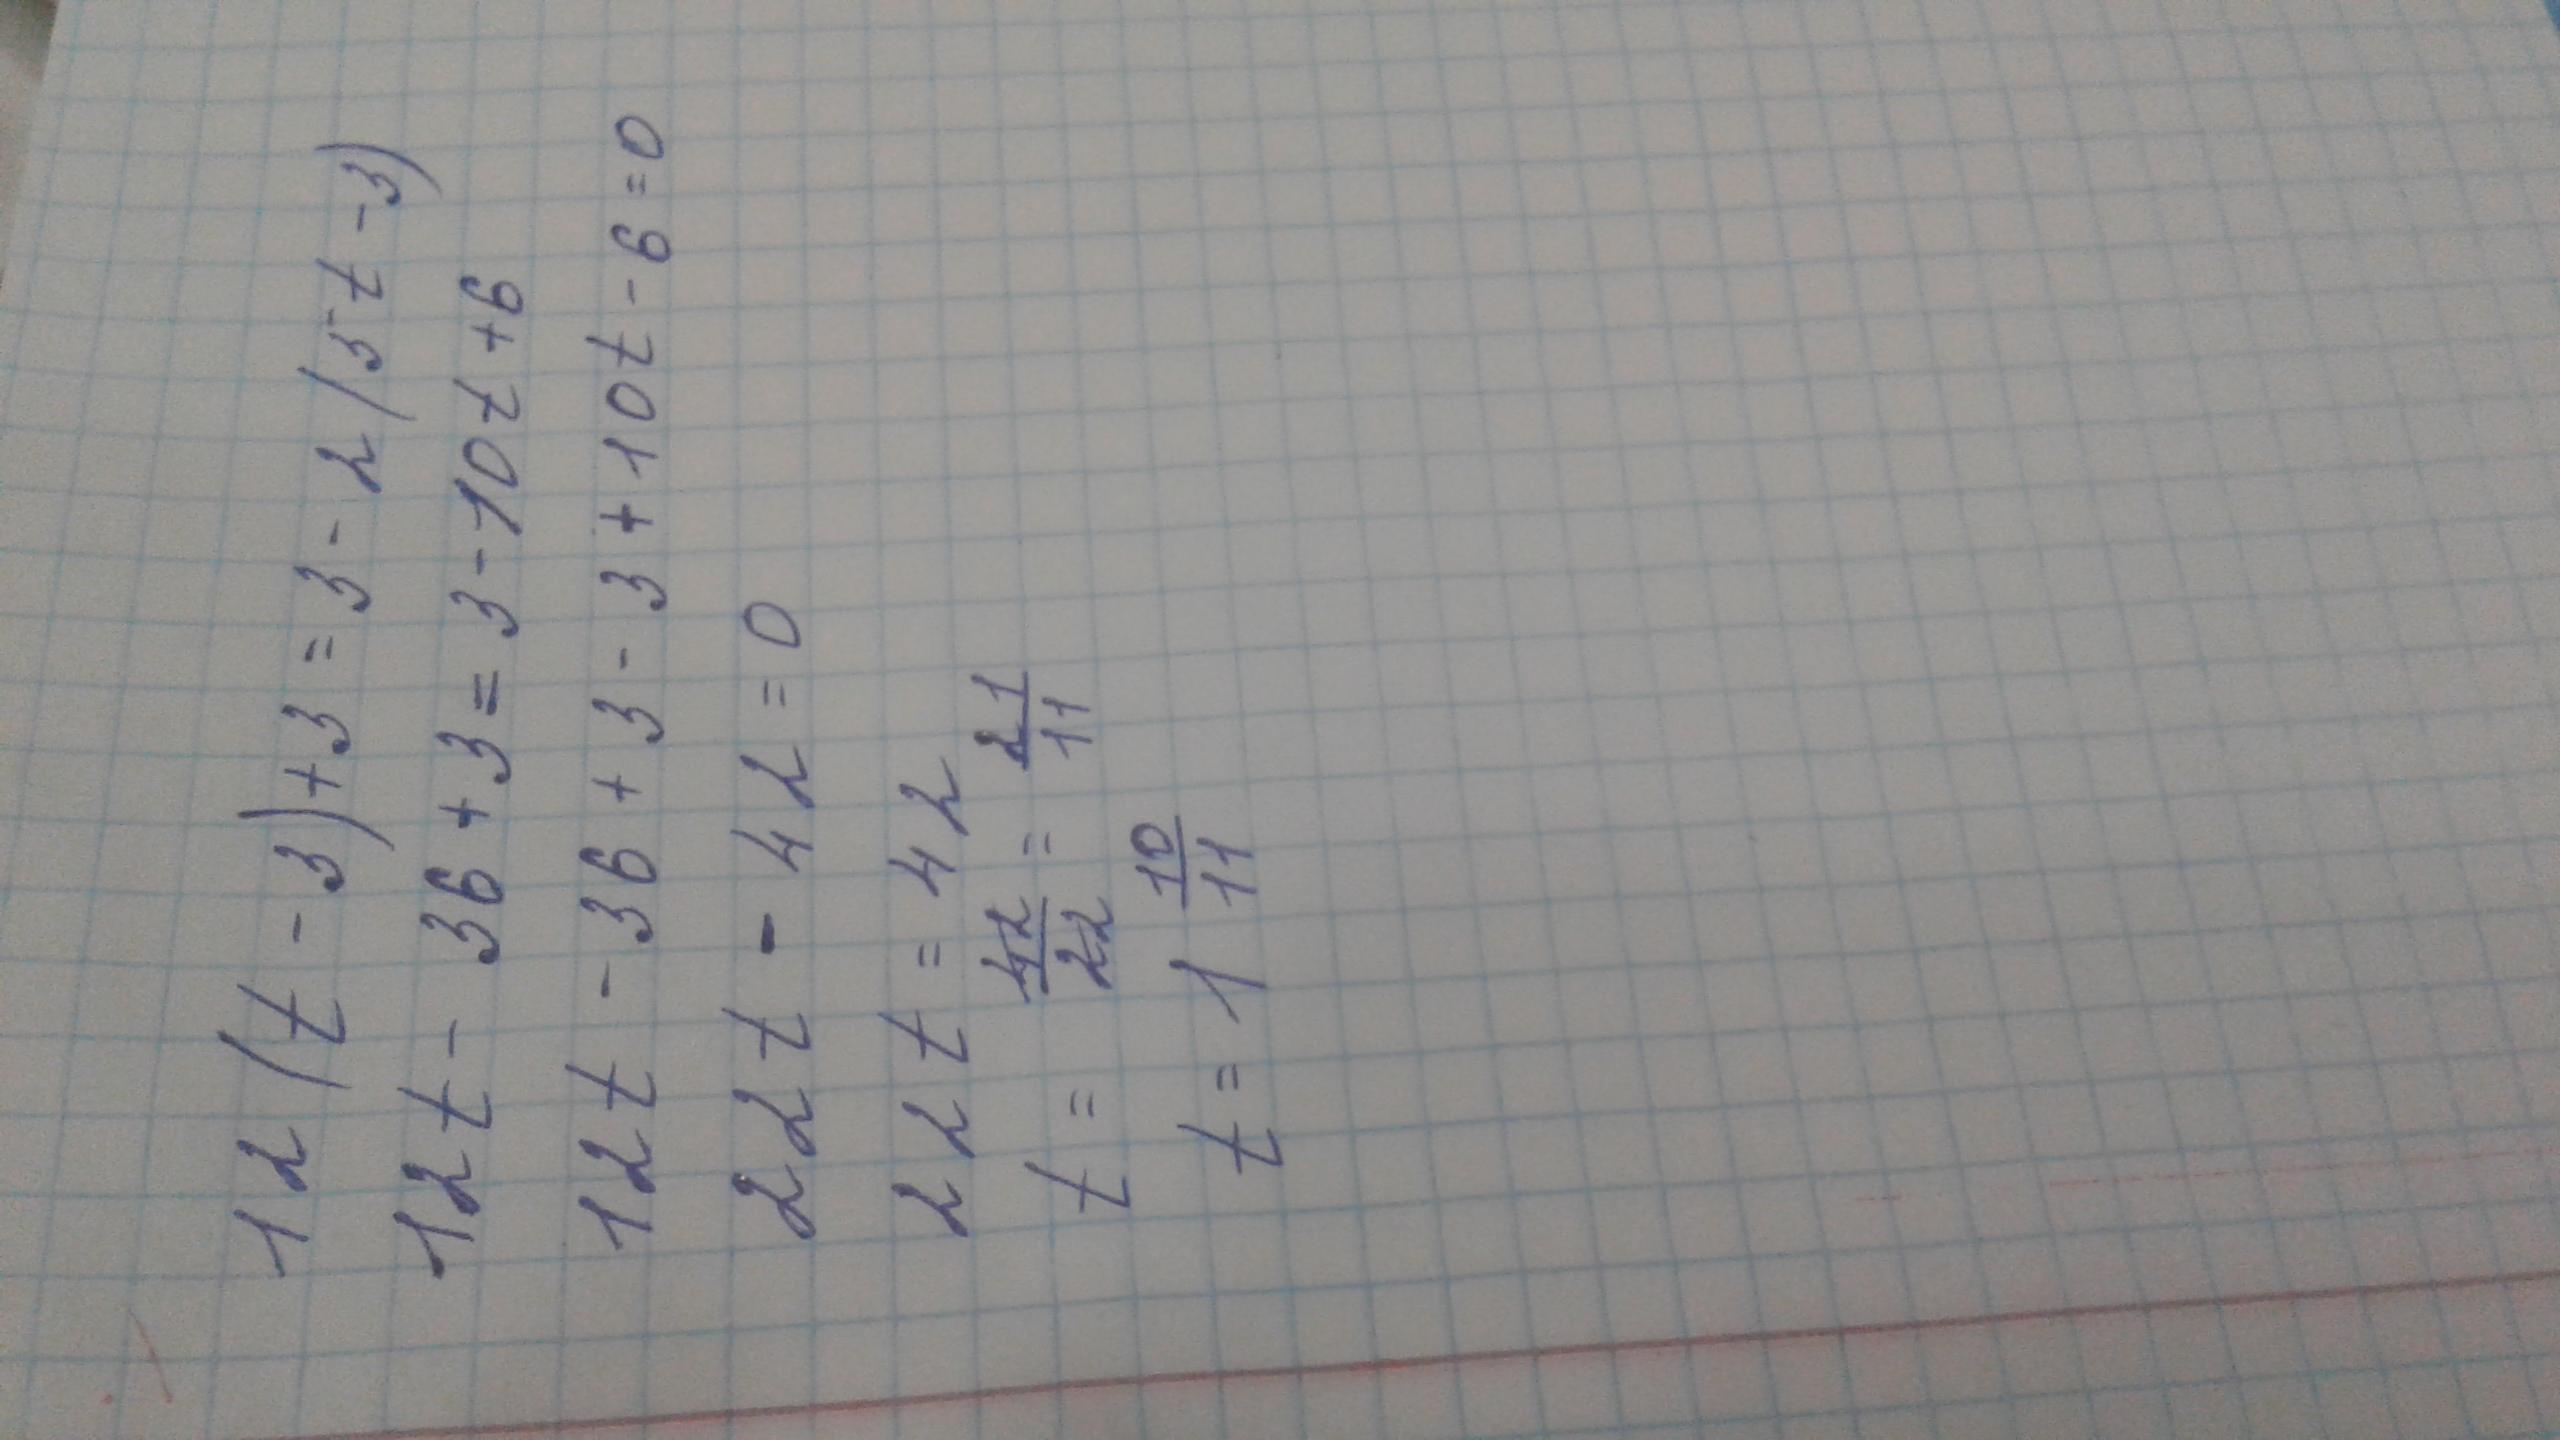 12(t-3)+3=3-2(5t-3)
12t-36+3=3-10t+6
12t-36+3-3+10t-6=0
22t-42=0
22t=42
t=42/22=21/11
t=1 10/11